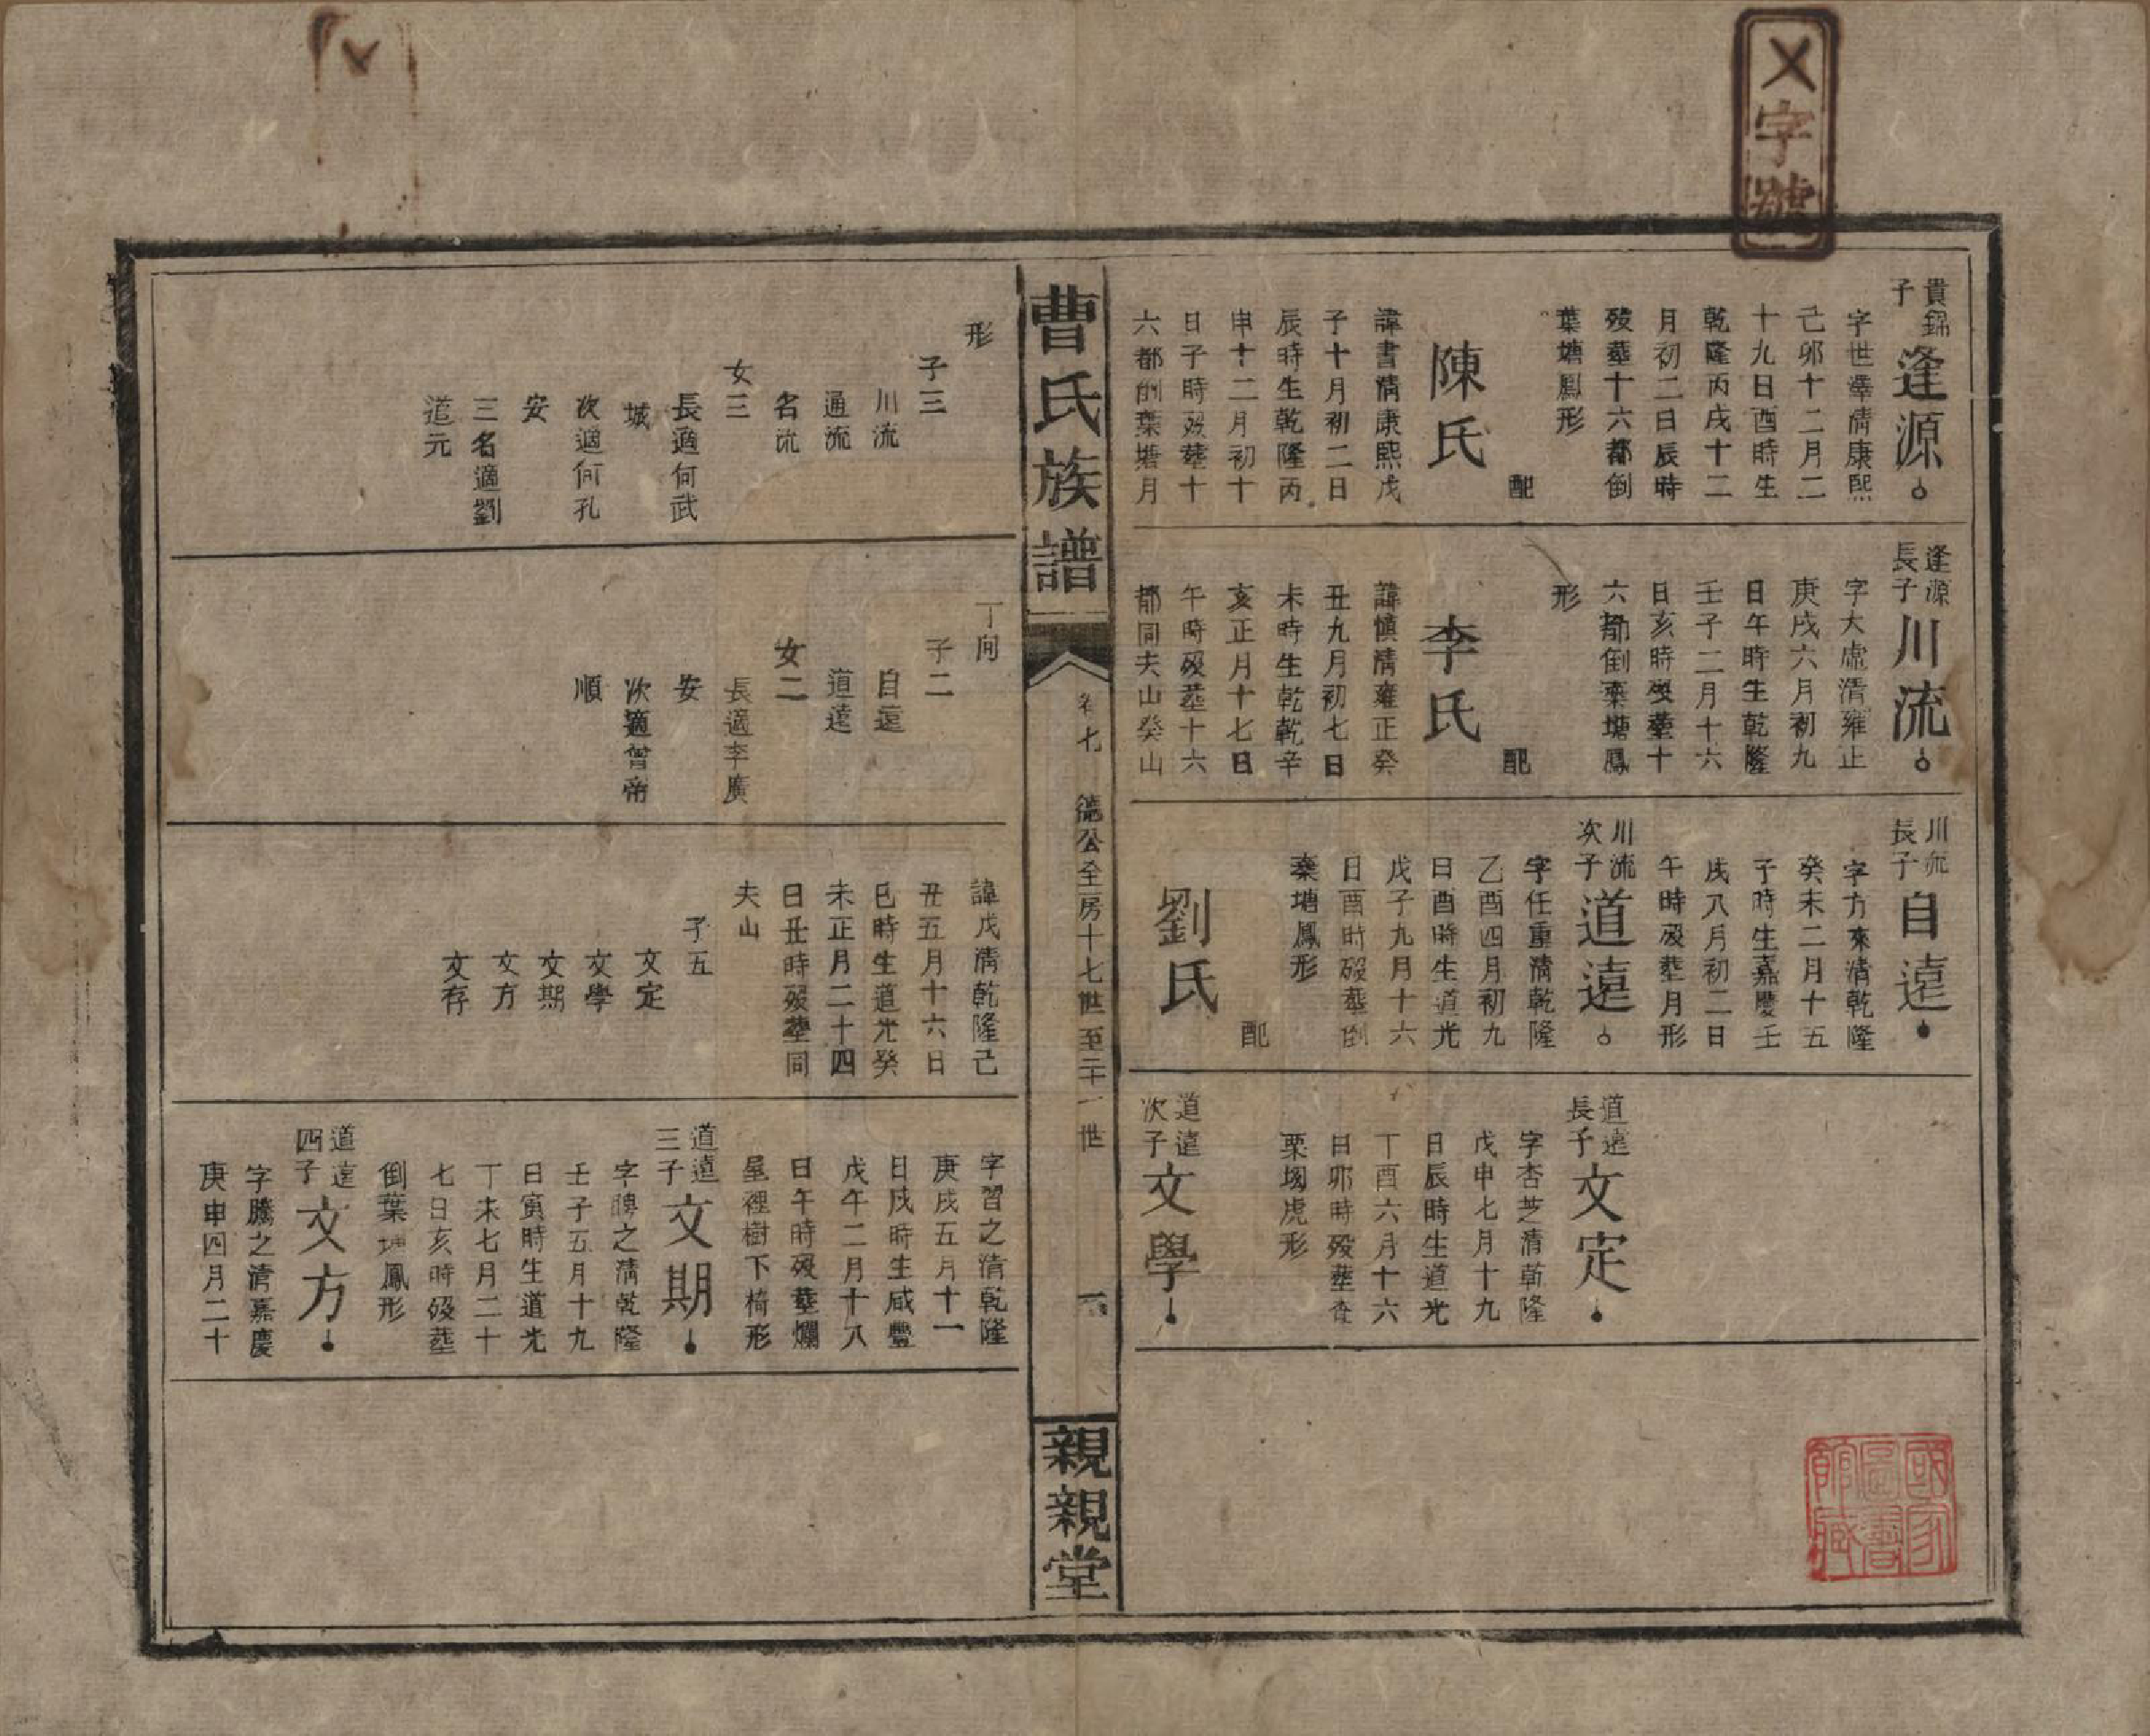 字號
貴錦子
逢源
字世澤清康熙
己卯十二月二
十九日酉時生
乾隆丙戌十二
月初二日辰時
歿塟十六都倒
葉塘鳳形
配
陳氏
諱書清康熙戊
子十月初二日
辰時生乾隆丙
申十二月初十
日子時歿塟十
六都倒葉塘月
逢源長子
川流
字大虛清雍正
庚戌六月初九
日午時生乾隆
壬子二月十六
日亥時歿塟十
六都倒葉塘鳳
形
配
李氏
諱慎清雍正癸
丑九月初七日
未時生乾乾辛
亥正月十七日
午時歿塟十六
都同夫山癸山
川流長子
自遠
字方來清乾隆
癸未二月十五
子時生嘉慶壬
戌八月初二日
午時歿塟月形
川流次子
道遠
字任重清乾隆
乙酉四月初九
日酉時生道光
戊子九月十六
日酉時歿塟倒
葉塘鳳形
配
劉氏
道遠長子
文定
字杏芝清乾隆
戊申七月十九
日辰時生道光
丁酉六月十六
日卯時歿塟
栗坳虎形
道遠次子
文學
曹氏族譜
卷七
德公至一房十七世至二十一世
親親堂
形
子三
川流
通流
名流
女三
長適何武
城
次適何孔
安
三名適劉
道元
丁向
子二
自遠
道遠
女二
長適李廣
安
次適曾帝
順
諱戊清乾隆己
丑五月十六日
巳時生道光癸
未正月二十四
日丑時歿塟同
夫山
子五
文定
文學
文期
文方
文存
字習之清乾隆
庚戌五月十一
日戌時生咸豐
戊午二月十八
日午時歿塟爛
屋裡樹下椅形
道遠三子
文期
字聘之清乾隆
壬子五月十九
日寅時生道光
丁未七月二十
七日亥時歿塟
倒葉塘鳳形
道遠四子
文方
字騰之清嘉慶
庚申四月二十
國家圖書館藏